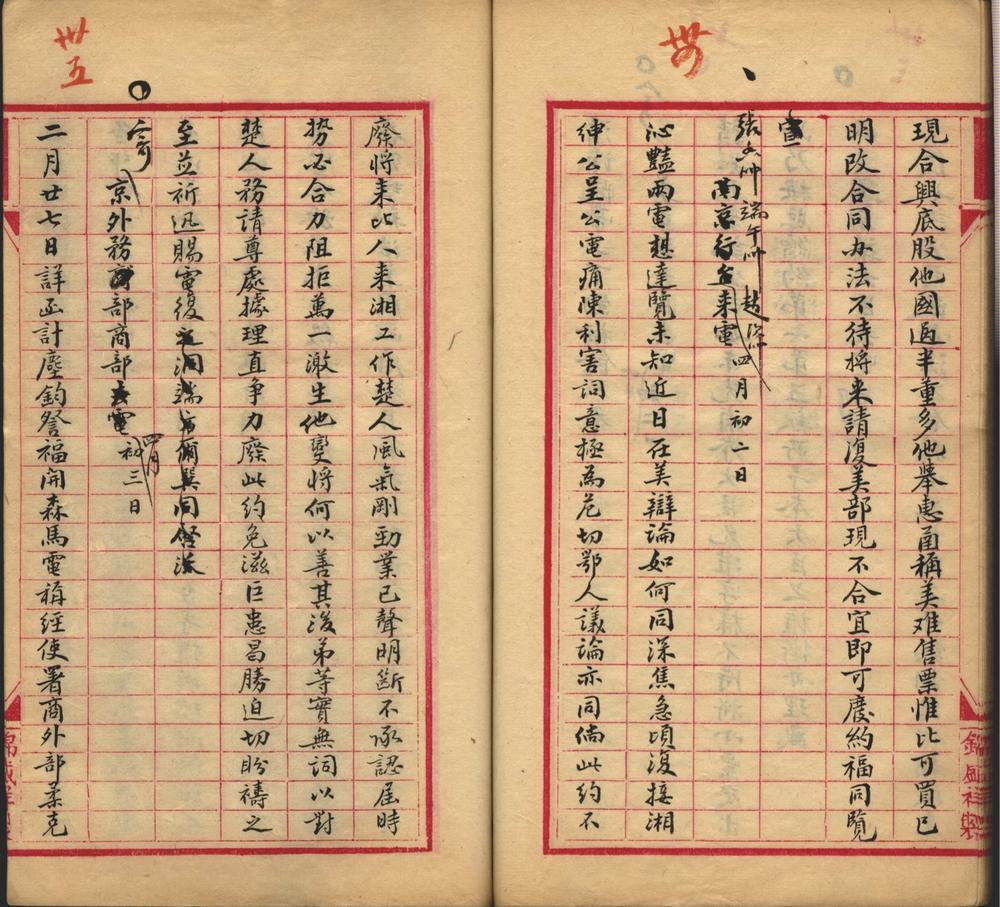 卅四
現合興底股他國逾半重多他舉惠甬稱美难售票惟比可買已
明改合同办法不待將来請復美部現不合宜即可廢約福同覽
宣
張 帅端午帅趙 四月初二日
南京行台来電
沁豔兩電想達覽未知近日在美辯論如何同深焦急頃復接湘
紳公呈公電痛陳利害詞意極為危切鄂人議論亦同倘此約不
卅五
廢將来比人来湘工作楚人風氣剛勁業已聲明斷不承認屆時
势必合力阻拒萬一激生他變將何以善其後弟等實無詞以對
楚人務請尊處據理直争力廢此約免滋巨患昌勝迫切盼禱之
至並祈迅賜電復之洞端方爾巽同
寄京外務部商部去電四月初三日
二月廿七日詳函計塵鈞詧福開森馬電稱經使署商外部柔克
錦盛祥